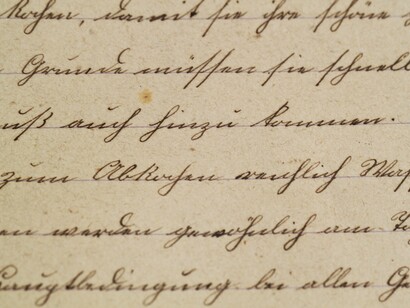 kochen, damit sie ihre schöne
Grunde müssen sie schnell
muß auch hinzu kommen.
zum Abkochen reichlich Was
en werden gewöhnlich am
Hauptbedingung bei allen Ge